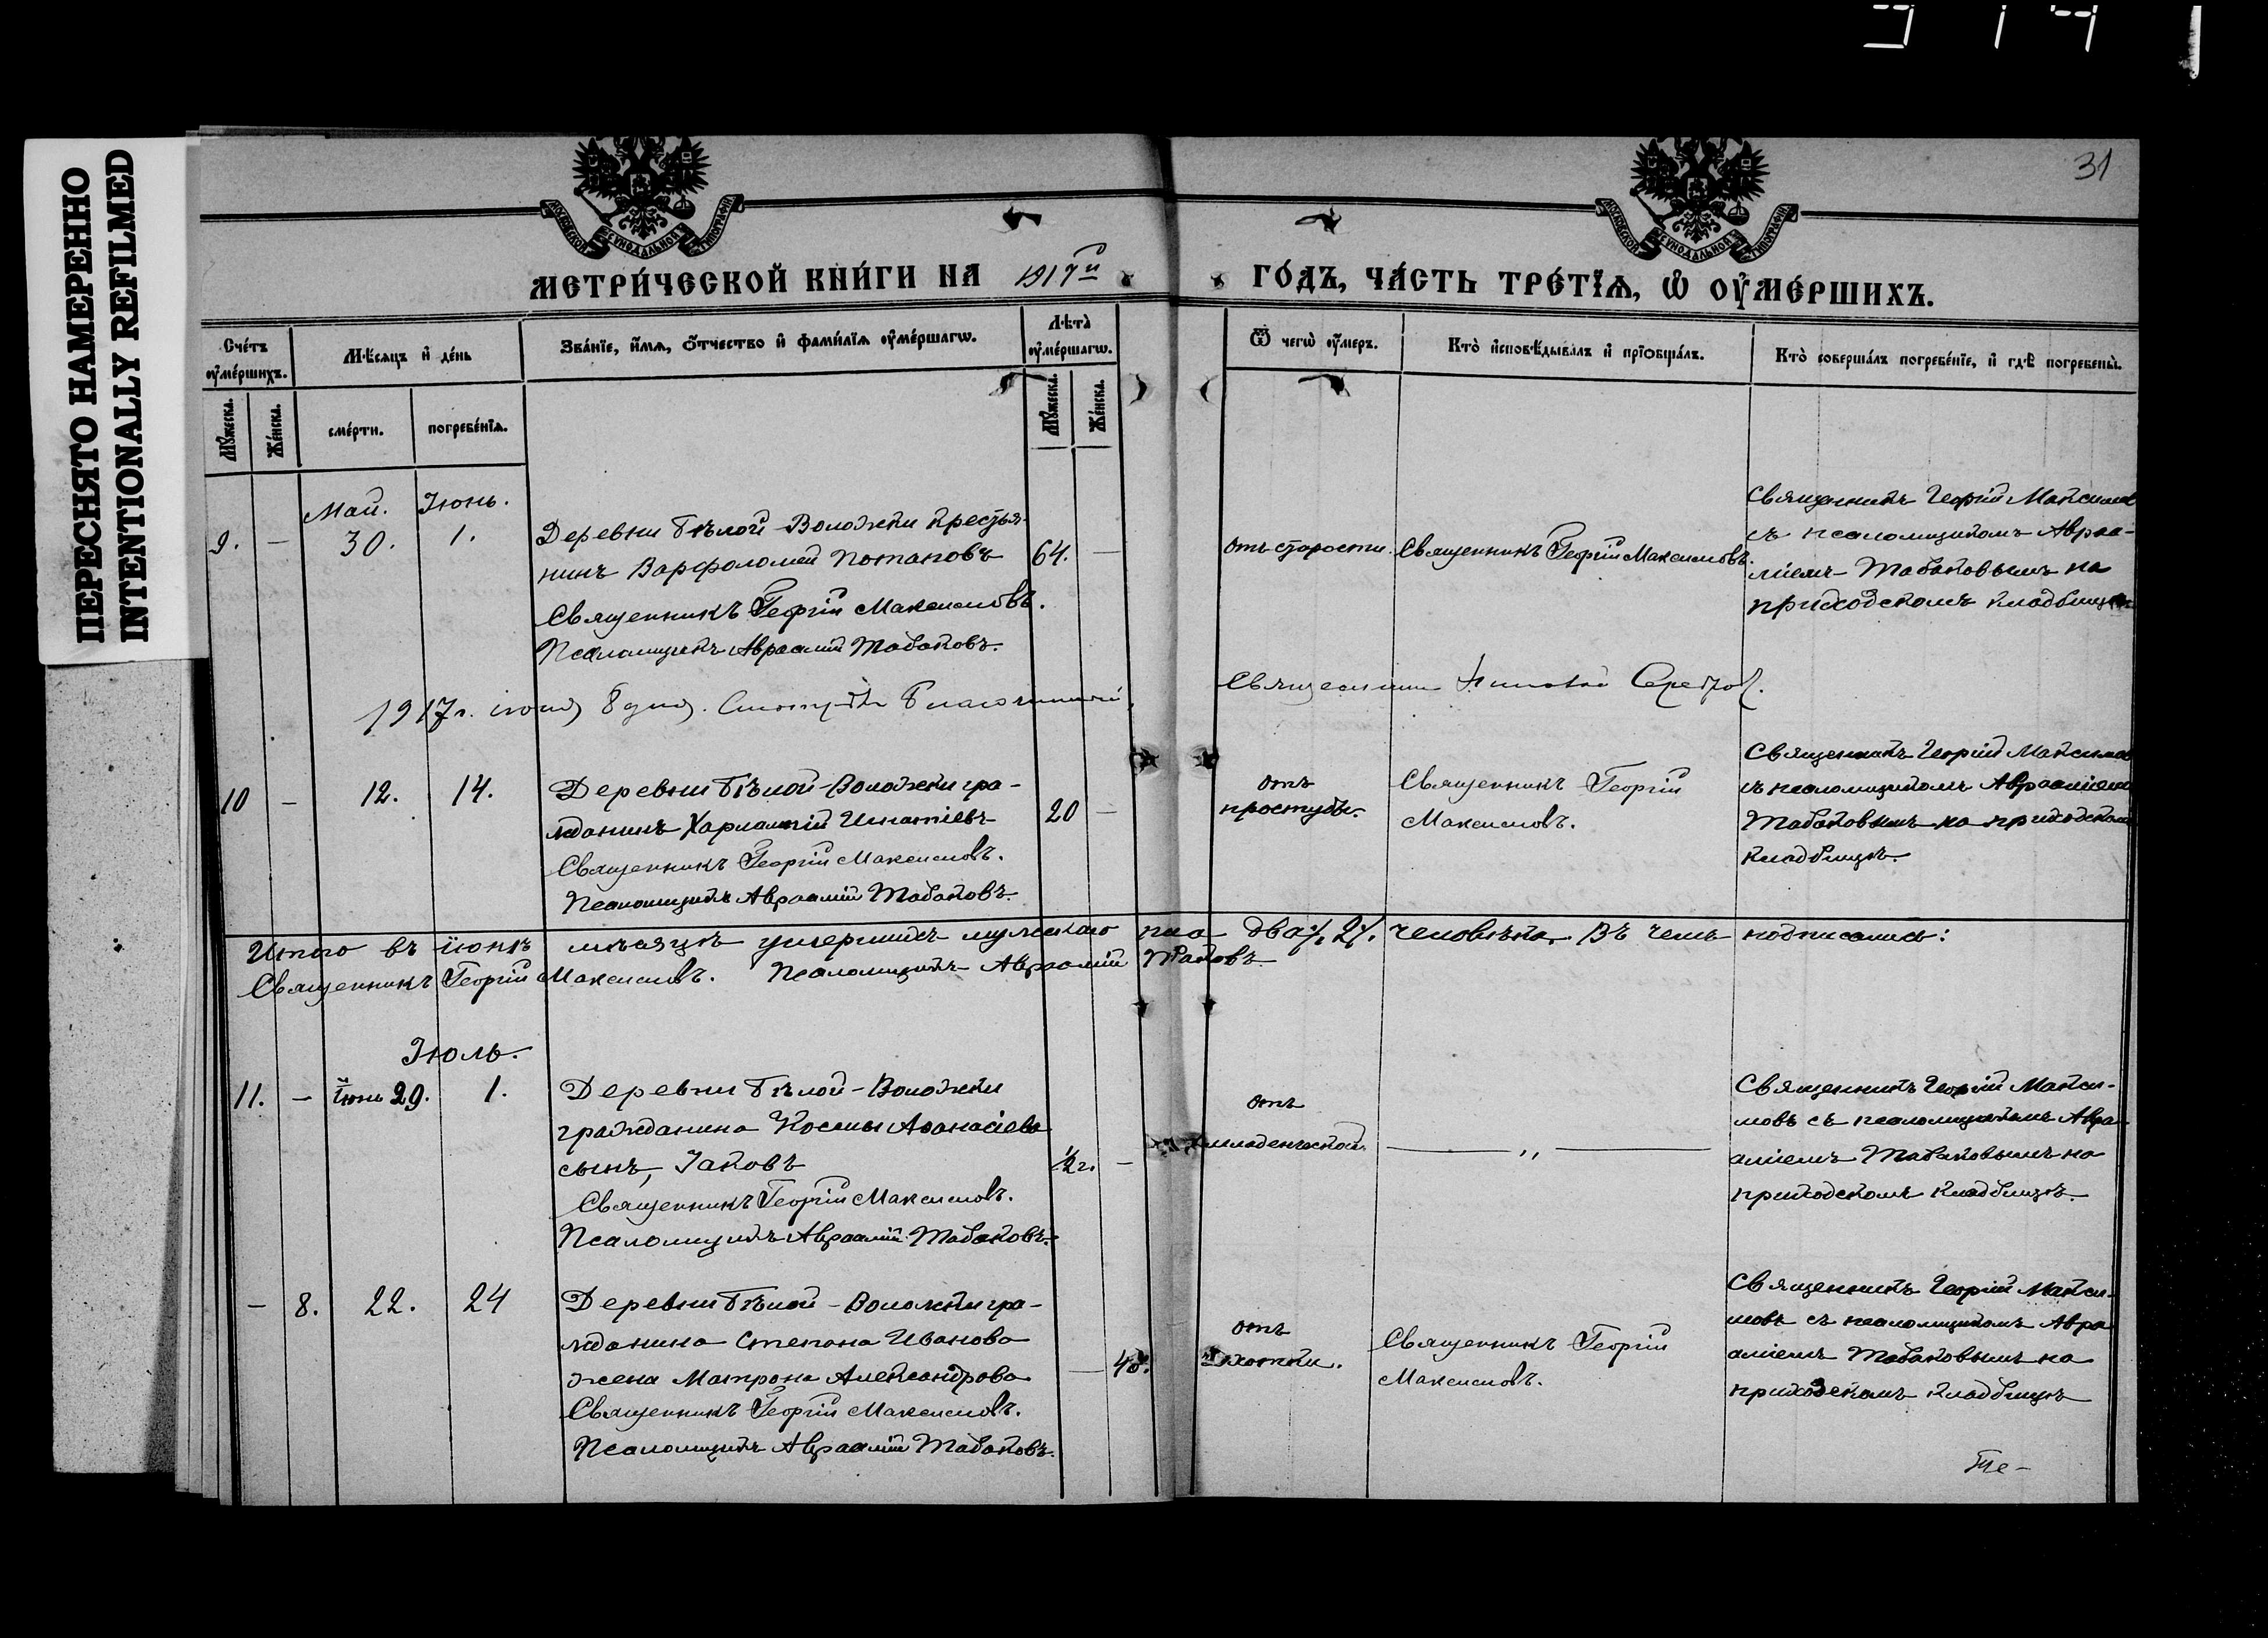 ПЕРЕСНЯТО НАМЕРЕННО
INTENTIONALLY REFILMED
31
МОСКОВСКОЙ СУНОДАЛЬНОЙ ТИПОГРАФІИ
МОСКОВСКОЙ СУНОДАЛЬНОЙ ТИПОГРАФІИ
МЕТРИ́ЧЕСКОЙ КНИ́ГИ НА 1917й ГО́ДЪ, ЧА́СТЬ ТРЕ́ТЇѦ, Ѽ ОУ҆МЕ́РШИХЪ.
Сче́тъ оу҆ме́ршихъ.
Мѣ́сяцъ и҆ де́нь
Зва́нїе, и҆́мѧ, ѻ҆́тчество и҆ фамі́лїѧ оу҆ме́ршагѡ.
Лѣ́та оу҆ме́ршагѡ.
Ѿ чегѡ̀ оу҆́меръ.
Кто̀ и҆сповѣ́дывалъ и҆ прїѡбща́лъ.
Кто̀ соверша́лъ погребе́нїе, и҆ гдѣ̀ погребены̀.
Мꙋ́жеска.
Же́нска.
сме́рти.
погребе́нїѧ.
Мꙋ́жеска.
Же́нска.
Май. Іюнь.
9. — 30. 1.
Деревни Бѣлой-Воложки крестья-
нинъ Варфоломей Потаповъ
64. —
Священникъ Георгій Максимовъ.
Псаломщикъ Авраамій Табаковъ.
отъ старости.
Священникъ Георгій Максимовъ.
Священникъ Георгій Максимов
съ псаломщикомъ Авраа-
міемъ Табаковымъ на
приходскомъ кладбищѣ
1917 г. іюня 8 дня. Благочинный,
Священникъ
10 — 12. 14.
Деревни Бѣлой-Воложки гра-
жданинъ Харлампій Игнатіевъ
20 —
Священникъ Георгій Максимовъ.
Псаломщикъ Авраамій Табаковъ.
отъ
простуды.
Священникъ Георгій
Максимовъ.
Священникъ Георгій Максимов
съ псаломщикомъ Авраамiемъ
Табаковымъ на приходскомъ
кладбищѣ.
Итого въ іюнѣ мѣсяцѣ умершихъ мужескаго пола два /2/. человѣка. Въ чемъ подписались:
Священникъ Георгій Максимовъ. Псаломщикъ Авраамій Табаковъ
Іюль.
11. — Іюнь 29. 1.
Деревни Бѣлой-Воложки
гражданина Космы Аѳанасіева
сынъ, Іаковъ
½ г. —
Священникъ Георгій Максимовъ.
Псаломщикъ Авраамій Табаковъ.
отъ
младенческой
— „ —
Священникъ Георгій Макси-
мовъ съ псаломщикомъ Авра-
аміемъ Табаковымъ на
приходскомъ кладбищѣ.
— 8. 22. 24
Деревни Бѣлой-Воложки гра-
жданина Степана Иванова
жена Матрона Александрова
— 40.
Священникъ Георгій Максимовъ.
Псаломщикъ Авраамій Табаковъ.
отъ
чахотки.
Священникъ Георгій
Максимовъ.
Священникъ Георгій Макси-
мовъ съ псаломщикомъ Авра-
аміемъ Табаковымъ на
приходскомъ кладбищѣ